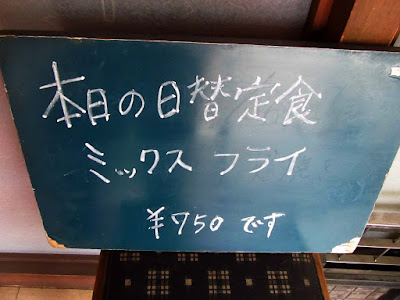 本日の日替定食
ミックスフライ
¥750です